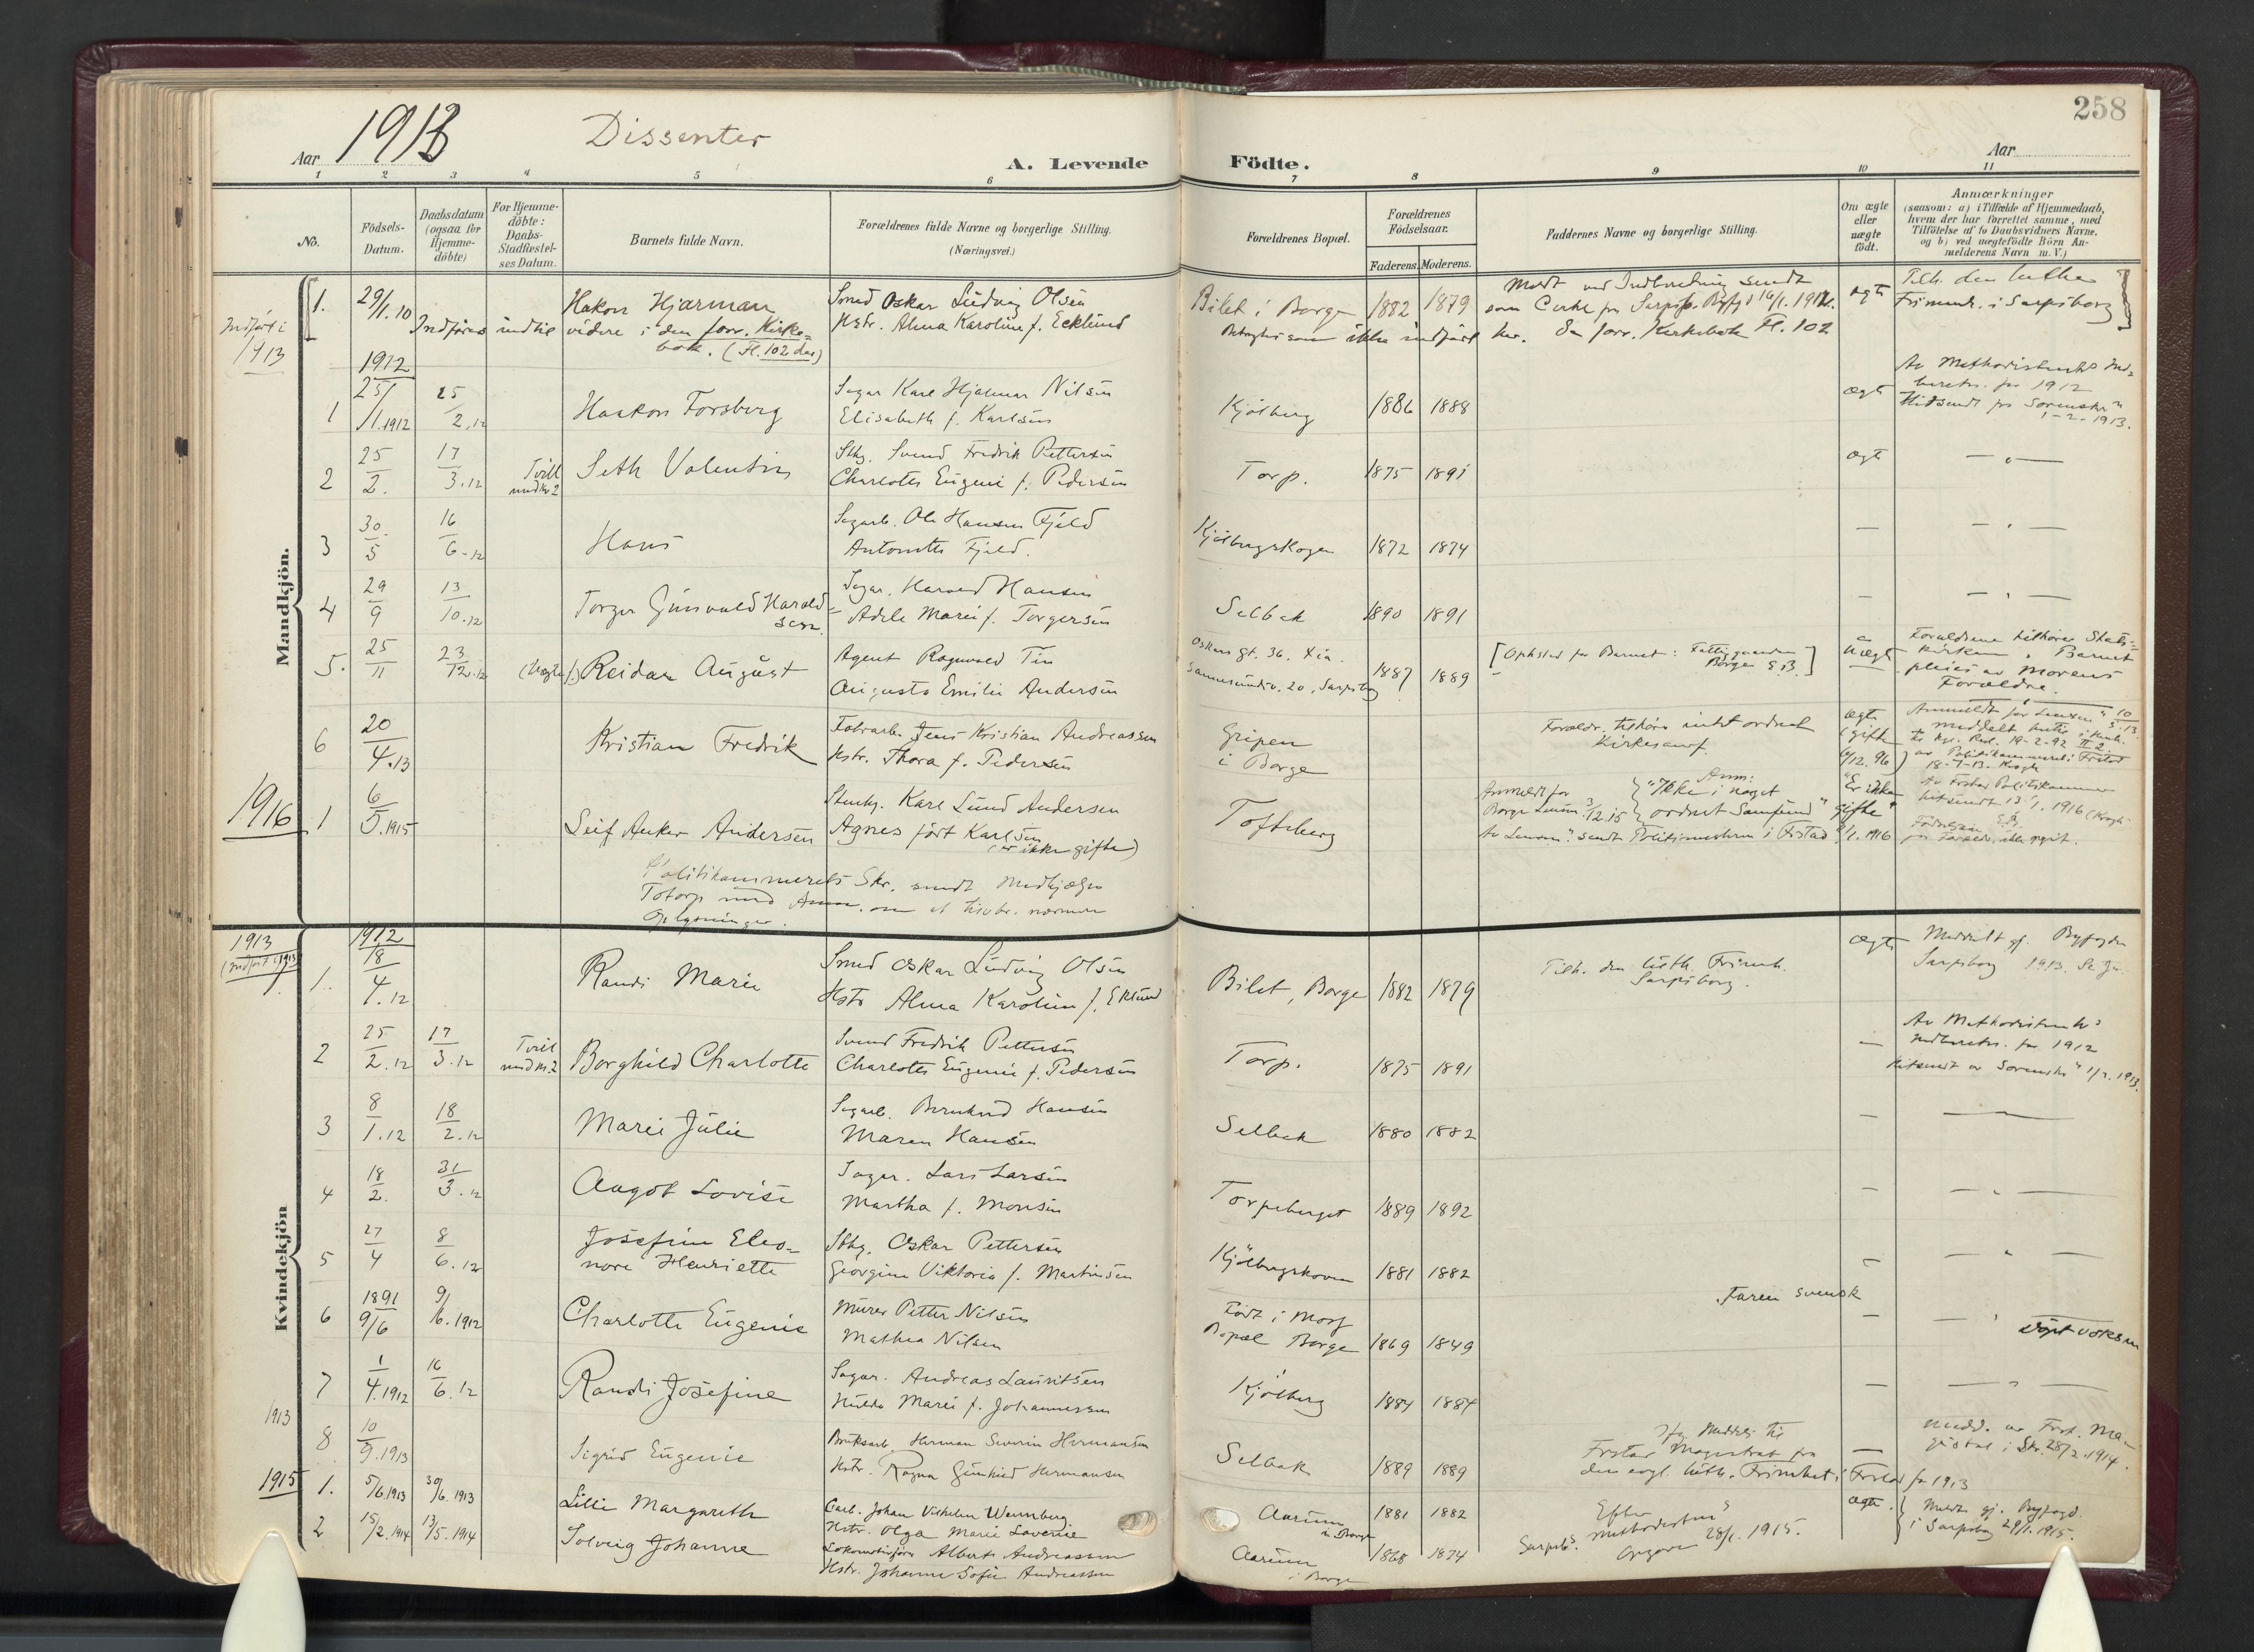 258
1913
Dissenter
Aar
A. Levende
Födte.
Aar
1 2 3 4 5 6 7 8 9 10 11
No.
Födsels-
Datum.
Daabsdatum
(ogsaa for
Hjemme-
döbte)
For Hjemme-
döbte:
Daabs-
Stadfæstel-
ses Datum.
Barnets fulde Navn.
Forældrenes fulde Navne og borgerlige Stilling.
(Næringsvei.)
Forældrenes Bopæl.
Forældrenes
Födselsaar.
Faderens.
Moderens.
Faddernes Navne og borgerlige Stilling.
Om ægte
eller
uægte
födt.
Anmærkninger
(saasom: a) i Tilfælde af Hjemmedaab,
hvem der har forrettet samme, med
Tilföielse af to Daabsvidners Navne,
og b) ved uægtefödte Börn An-
melderens Navn m. V.)
Mandkjön.
Indført i
1913
1. 29/1.10 Hakon Hjarman
Smed Oskar Ludvig Olsen
Hstr. Alma Karoline f. Ecklund
Bilet i Borge 1882 1879
ægte
Tilh. den luthe
Frimenh. i Sarpsborg
Indføres indtil videre i den forr. Kirke-
bok. (Fl. 102 der)
Betragtes som ikke indført her. Se forr. Kirkebok Fl. 102
1912
1 25/1.1912 25/2.12 Haakon Forsberg
Sagar Karl Hjalmar Nilsen
Elisabeth f. Karlsen
Kjølberg 1886 1888
ægte
Av Methodistmenh.s Ind-
beretn. for 1912
Hitsendt fra Sorenskr.
1-2-1913.
2 25/2. 17/3.12 Tvill
med nr 2 Seth Valentin
Stbg. Svend Fredrik Pettersen
Charlotte Eugenie f. Pedersen
Torp. 1875 1891
ægte — " —
3 30/5 16/6-12 Hans
Sagarb. Ole Hansen Fjeld
Antonette Fjeld.
Kjølbergskogen 1872 1874
— — " —
4 29/9 13/10.12 Torger Gunvald Harald-
sen
Sagar. Harald Hansen
Adele Marie f. Torgersen
Selbak 1890 1891
— — " —
5. 25/11 23/12.12 (Uægte f.) Reidar August
Agent Ragnvald
Augusta Emilie Andersen
Oskars gt. 36. Xia.
Sannesundsv. 20, Sarpsborg
1887 1889
[Opholdst for Barnet: Fattiggaarden
Borge]
Uægte
Forældrene tilhører Stats-
kirken. Barnet
pleies av Morens
Forældre.
6 20/4.13 Kristian Fredrik
Fabrarb. Jens Kristian Andreassen
Hstr. Thora f. Pedersen
Gripen
i Borge
Forældr. tilhører intet ordnet
Kirkesamf.
ægte
(gifte
6/12.96)
Anmeldt for Lensm. 10/5.13
18-7-13.
1916
1 6/5.1915 Leif Anker Andersen
Stenhg. Karl Lund Andersen
Agnes født Karlsen
(er ikke gifte)
Tofteberg
Anmeldt for
Borge Lensm. 3/12.15
Anm:
"Ikke i noget
ordnet Samfund"
"Er ikke
gifte"
Av Fr.stad Politikammer
hitsendt 13/1.1916
Av Lensm. sendt Politimesteren i Fr.stad 8/1.1916
Politikammerets Skr. sendt
Totorp med Anm. om at tilveiebr. nærmere
Oplysninger.
Kvindekjön
1913
(Indført i 1913)
1912
1. 18/4.12 Randi Marie
Smed Oskar Ludvig Olsen
Hstr Alma Karoline f. Eklund
Bilet, Borge 1882 1879
Tilh. den luth. Frimh.
Sarpsborg.
ægte
Meddelt gj. Byfogden
Sarpsborg 1913.
2 25/2.12 17/3.12 Tvill
med nr. 2 Borghild Charlotte
Svend Fredrik Pettersen
Charlotte Eugenie f. Pedersen
Torp. 1875 1891
—
Av Methodistmenh.s
Indberetn. for 1912
hitsendt av Sorenskr. 1/2.1913.
3 8/1.12 18/2.12 Marie Julie
Sagarb. Bernhard Hansen
Maren Hansen
Selbak 1880 1882
4 18/2. 31/3.12 Aagot Lovise
Sagar. Lars Larsen
Martha f. Monsen
Torpeberget 1889 1892
— — " —
5 27/4 8/6.12 Josefine Eleo-
nore Henriette
Stbg. Oskar Pettersen
Georgine Viktoria f. Martinsen
Kjølbergskoven 1881 1882
— — " —
6 1891 9/6 9/6.1912 Charlotte Eugenie
Murer Petter Nilsen
Mathea Nilsen
Født i Moss
Bopæl Borge 1869 1849
Faren svensk
— — " døpt voksen
7 1/4.1912 16/6.12 Randi Josefine
Sagar. Andreas Lauritsen
Hulda Marie f. Johannessen
Kjølberg 1884 1884
— — " —
1913
8 10/9.1913 Sigrid Eugenie
Bruksarb. Herman Severin Hermansen
Hstr. Ragna Gunhild Hermansen
Selbak 1889 1889
Ifg. Meddel. til
Fr.stad Magistrat fra
den evgl. luth. Frimhet i Fr.stad for 1913
—
medd. av Frst. Ma-
gistrat i Skr. 28/2.1914.
1915
1. 5/6.1913 30/6.1913 Lilli Margareth
Garb. Johan Vilhelm Wennberg
Hstr. Olga Marie Lovenie
Aarum
i Borge 1881 1882
ægte.
Efter
Sarpsb. Methodistm.s
Opgave 28/1.1915.
Meddt gj. Byfogd.
i Sarpsborg 29/1.1915.
2 15/2.1914 13/5.1914 Solveig Johanne
Lokomotivfører Albert Andreassen
Hstr. Johanne Sofie Andreassen
Aarum
i Borge 1868 1874